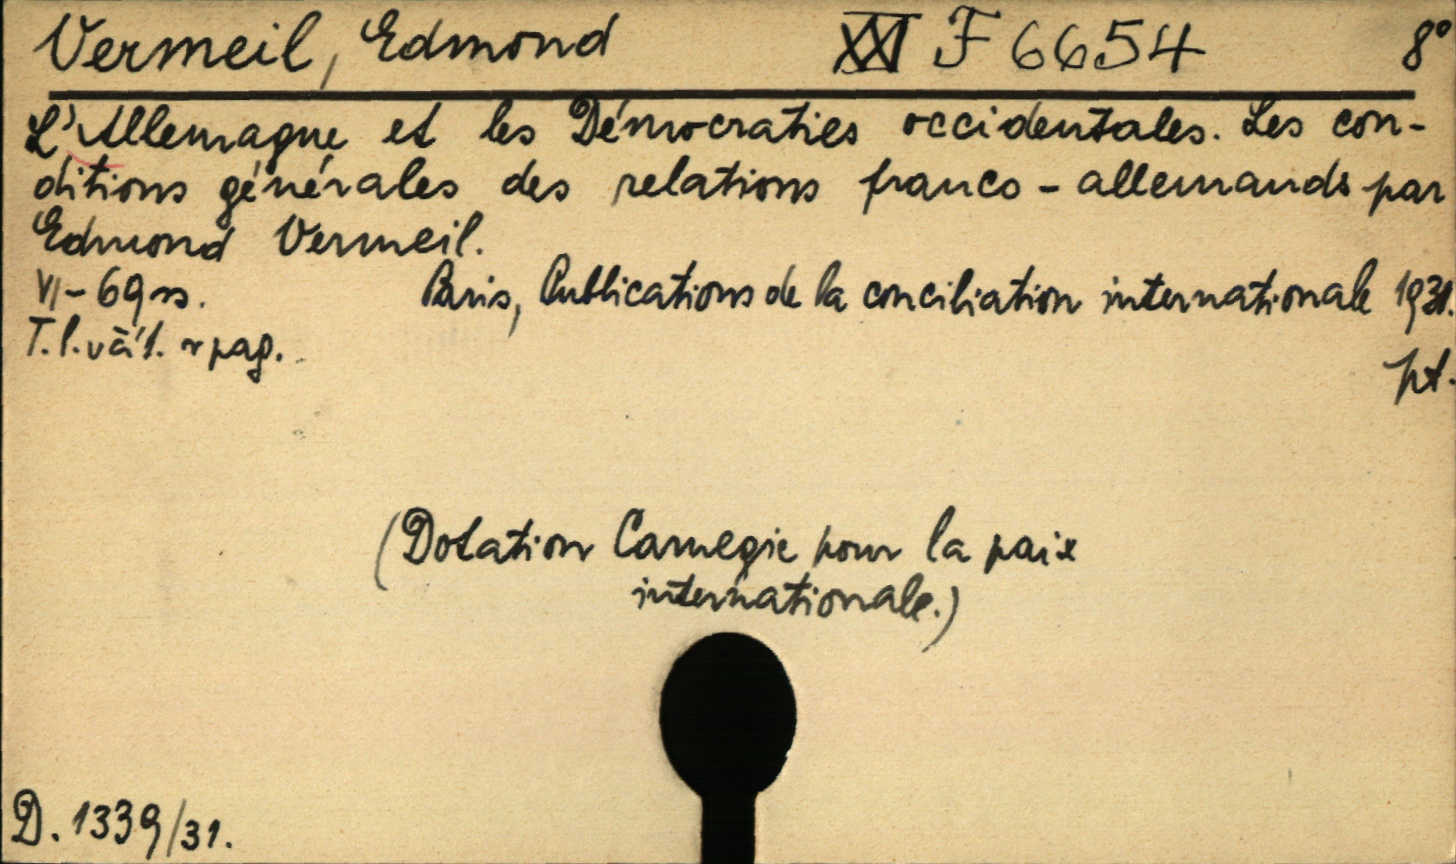 Vermeil, Edmond XXI F 6654 8°
L'Allemagne et les Démocraties occidentales. Les con-
ditions générales des relations franco-allemands par
Edmond Vermeil.
VI-69 s. Paris, Publications de la conciliation internationale 1931.
T. l. pag.
pt.
(Dotation Carnegie pour la paix
internationale.)
D. 1339/31.